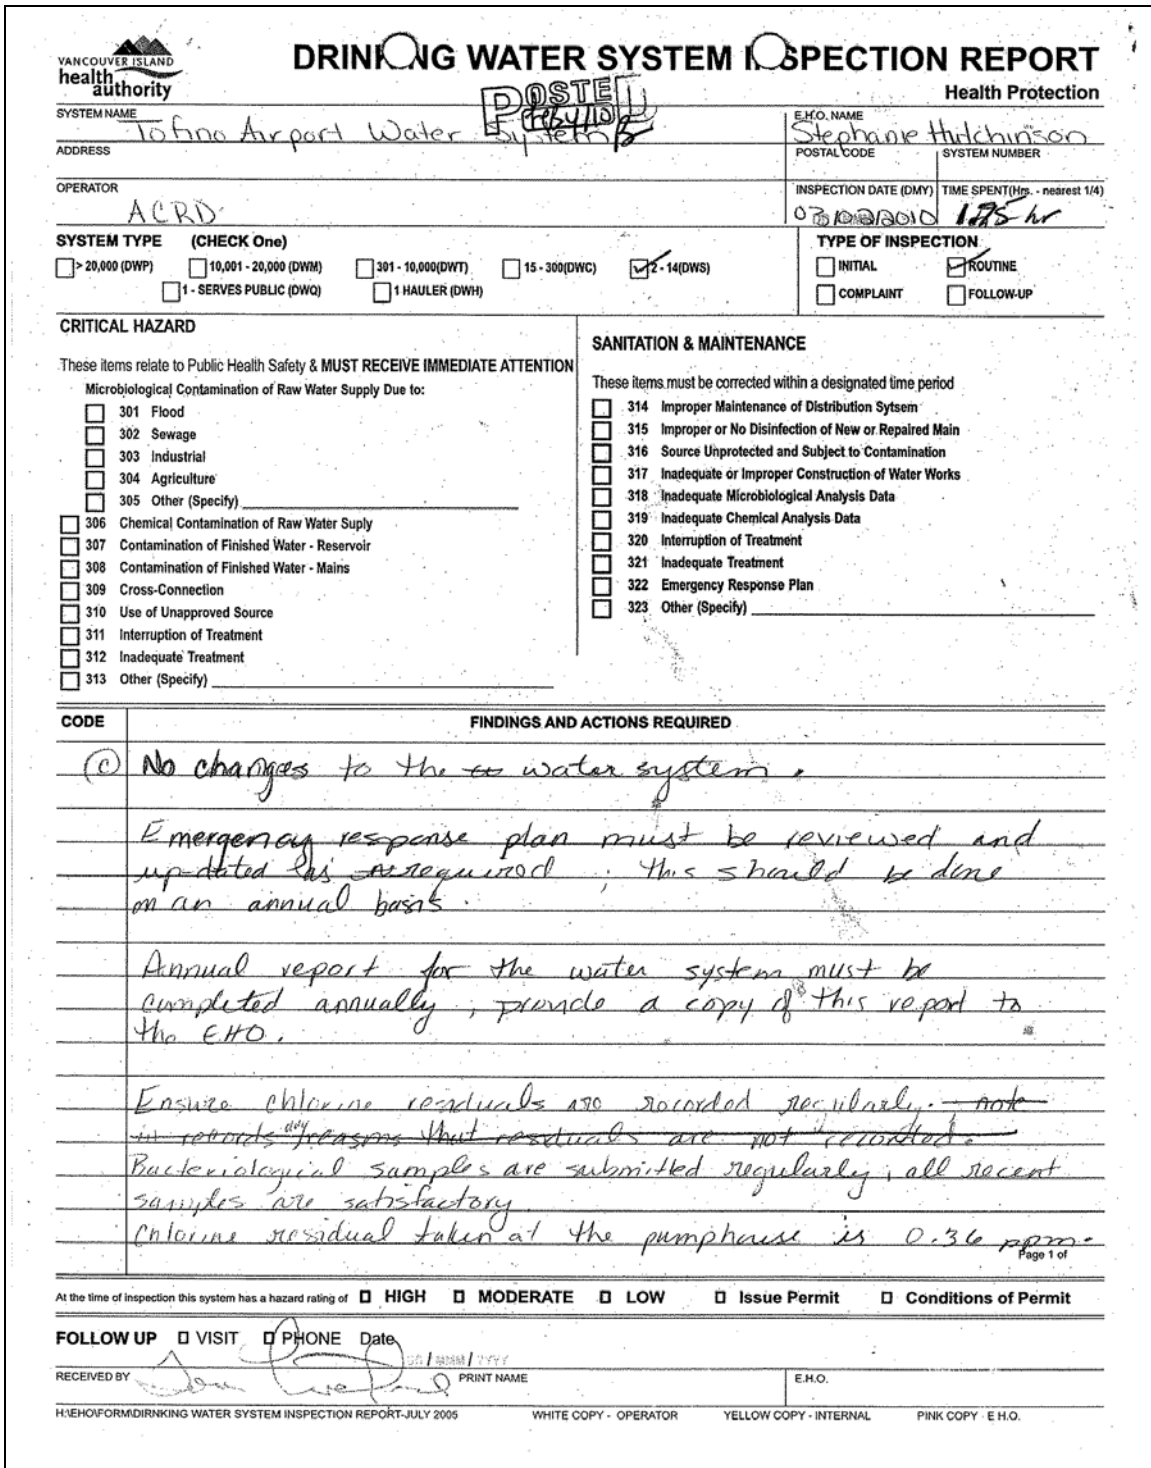 VANCOUVER ISLAND
health
authority
DRINKING WATER SYSTEM INSPECTION REPORT
Health Protection
POSTED
Feb 4/10
SYSTEM NAME
Tofino Airport Water System
E.H.O. NAME
Stephanie Hutchinson
ADDRESS
POSTAL CODE
SYSTEM NUMBER
OPERATOR
ACRD
INSPECTION DATE (DMY)
03/02/2010
TIME SPENT(Hrs. - nearest 1/4)
1.25 hr
SYSTEM TYPE (CHECK One)
> 20,000 (DWP) 10,001 - 20,000 (DWM) 301 - 10,000(DWT) 15 - 300(DWC) 2 - 14(DWS)
1 - SERVES PUBLIC (DWQ) 1 HAULER (DWH)
TYPE OF INSPECTION
INITIAL ROUTINE
COMPLAINT FOLLOW-UP
CRITICAL HAZARD
These items relate to Public Health Safety & MUST RECEIVE IMMEDIATE ATTENTION
Microbiological Contamination of Raw Water Supply Due to:
301 Flood
302 Sewage
303 Industrial
304 Agriculture
305 Other (Specify)
306 Chemical Contamination of Raw Water Suply
307 Contamination of Finished Water - Reservoir
308 Contamination of Finished Water - Mains
309 Cross-Connection
310 Use of Unapproved Source
311 Interruption of Treatment
312 Inadequate Treatment
313 Other (Specify)
SANITATION & MAINTENANCE
These items must be corrected within a designated time period
314 Improper Maintenance of Distribution Sytsem
315 Improper or No Disinfection of New or Repaired Main
316 Source Unprotected and Subject to Contamination
317 Inadequate or Improper Construction of Water Works
318 Inadequate Microbiological Analysis Data
319 Inadequate Chemical Analysis Data
320 Interruption of Treatment
321 Inadequate Treatment
322 Emergency Response Plan
323 Other (Specify)
CODE FINDINGS AND ACTIONS REQUIRED
(C) No changes to the water system.
Emergency response plan must be reviewed and
up-dated as required; this should be done
on an annual basis.
Annual report for the water system must be
completed annually, provide a copy of this report to
the EHO.
Ensure chlorine residuals are recorded regularly. note
in records any reasons that residuals are not recorded.
Bacteriological samples are submitted regularly, all recent
samples are satisfactory.
Chlorine residual taken at the pumphouse is 0.36 ppm.
Page 1 of
At the time of inspection this system has a hazard rating of HIGH MODERATE LOW Issue Permit Conditions of Permit
FOLLOW UP VISIT PHONE Date
DD / MMM / YYYY
RECEIVED BY
PRINT NAME
E.H.O.
H:\EHO\FORM\DIRNKING WATER SYSTEM INSPECTION REPORT-JULY 2005 WHITE COPY - OPERATOR YELLOW COPY - INTERNAL PINK COPY - E H.O.